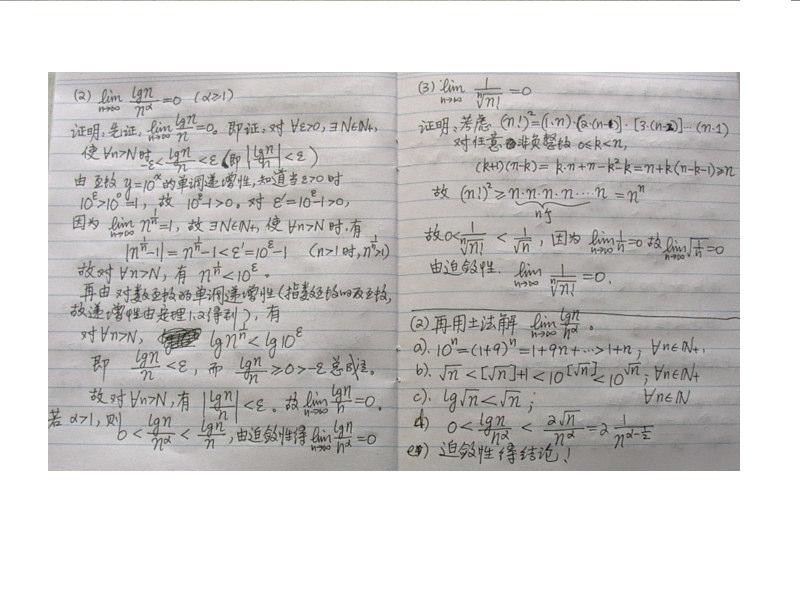 (2) lim_{n→∞} lg n / n^α = 0 (α≥1)
证明,先证, lim_{n→∞} lg n / n = 0。即证,对 ∀ε>0, ∃N∈N₊,
使 ∀n>N 时, -ε < lg n / n < ε (即 |lg n / n| < ε)
由函数 y=10^x 的单调递增性,知道当 ε>0 时
10^ε>10^0=1, 故 10^ε-1>0。对 ε'=10^ε-1>0,
因为 lim_{n→∞} n^{1/n}=1, 故 ∃N∈N₊, 使 ∀n>N 时,有
|n^{1/n}-1| = n^{1/n}-1<ε'=10^ε-1 (n>1时, n^{1/n}>1)
故对 ∀n>N, 有 n^{1/n}<10^ε。
再由对数函数的单调递增性(指数函数的反函数,
故递增性由定理1.2得到), 有
对 ∀n>N, lg n^{1/n} < lg 10^ε
即 lg n / n < ε, 而 lg n / n ≥ 0 > -ε 总成立。
故对 ∀n>N, 有 |lg n / n| < ε。故 lim_{n→∞} lg n / n = 0。
若 α>1, 则
0 < lg n / n^α < lg n / n, 由迫敛性得 lim_{n→∞} lg n / n^α = 0
(3) lim_{n→∞} 1 / ⁿ√n! = 0
证明,考虑 (n!)²=(1·n)·(2·(n-1))·[3·(n-2)]…(n·1)
对任意非负整数 0≤k<n,
(k+1)(n-k)= k·n+n-k²-k=n+k(n-k-1)≥n
故 (n!)² ≥ n·n·n·n…n = n^n
n个
故 0< 1 / ⁿ√n! < 1/√n, 因为 lim_{n→∞} 1/n = 0 故 lim_{n→∞} √(1/n) = 0
由迫敛性. lim_{n→∞} 1 / ⁿ√n! = 0.
(2) 再用土法解 lim_{n→∞} lg n / n^α。
a). 10^n=(1+9)^n=1+9n+…>1+n, ∀n∈N₊.
b). √n < [√n]+1 < 10^{[√n]} < 10^{√n}; ∀n∈N₊
c). lg√n < √n; ∀n∈N
d) 0 < lg n / n^α < 2√n / n^α = 2 1 / n^{α-1/2}
e) 迫敛性得结论!